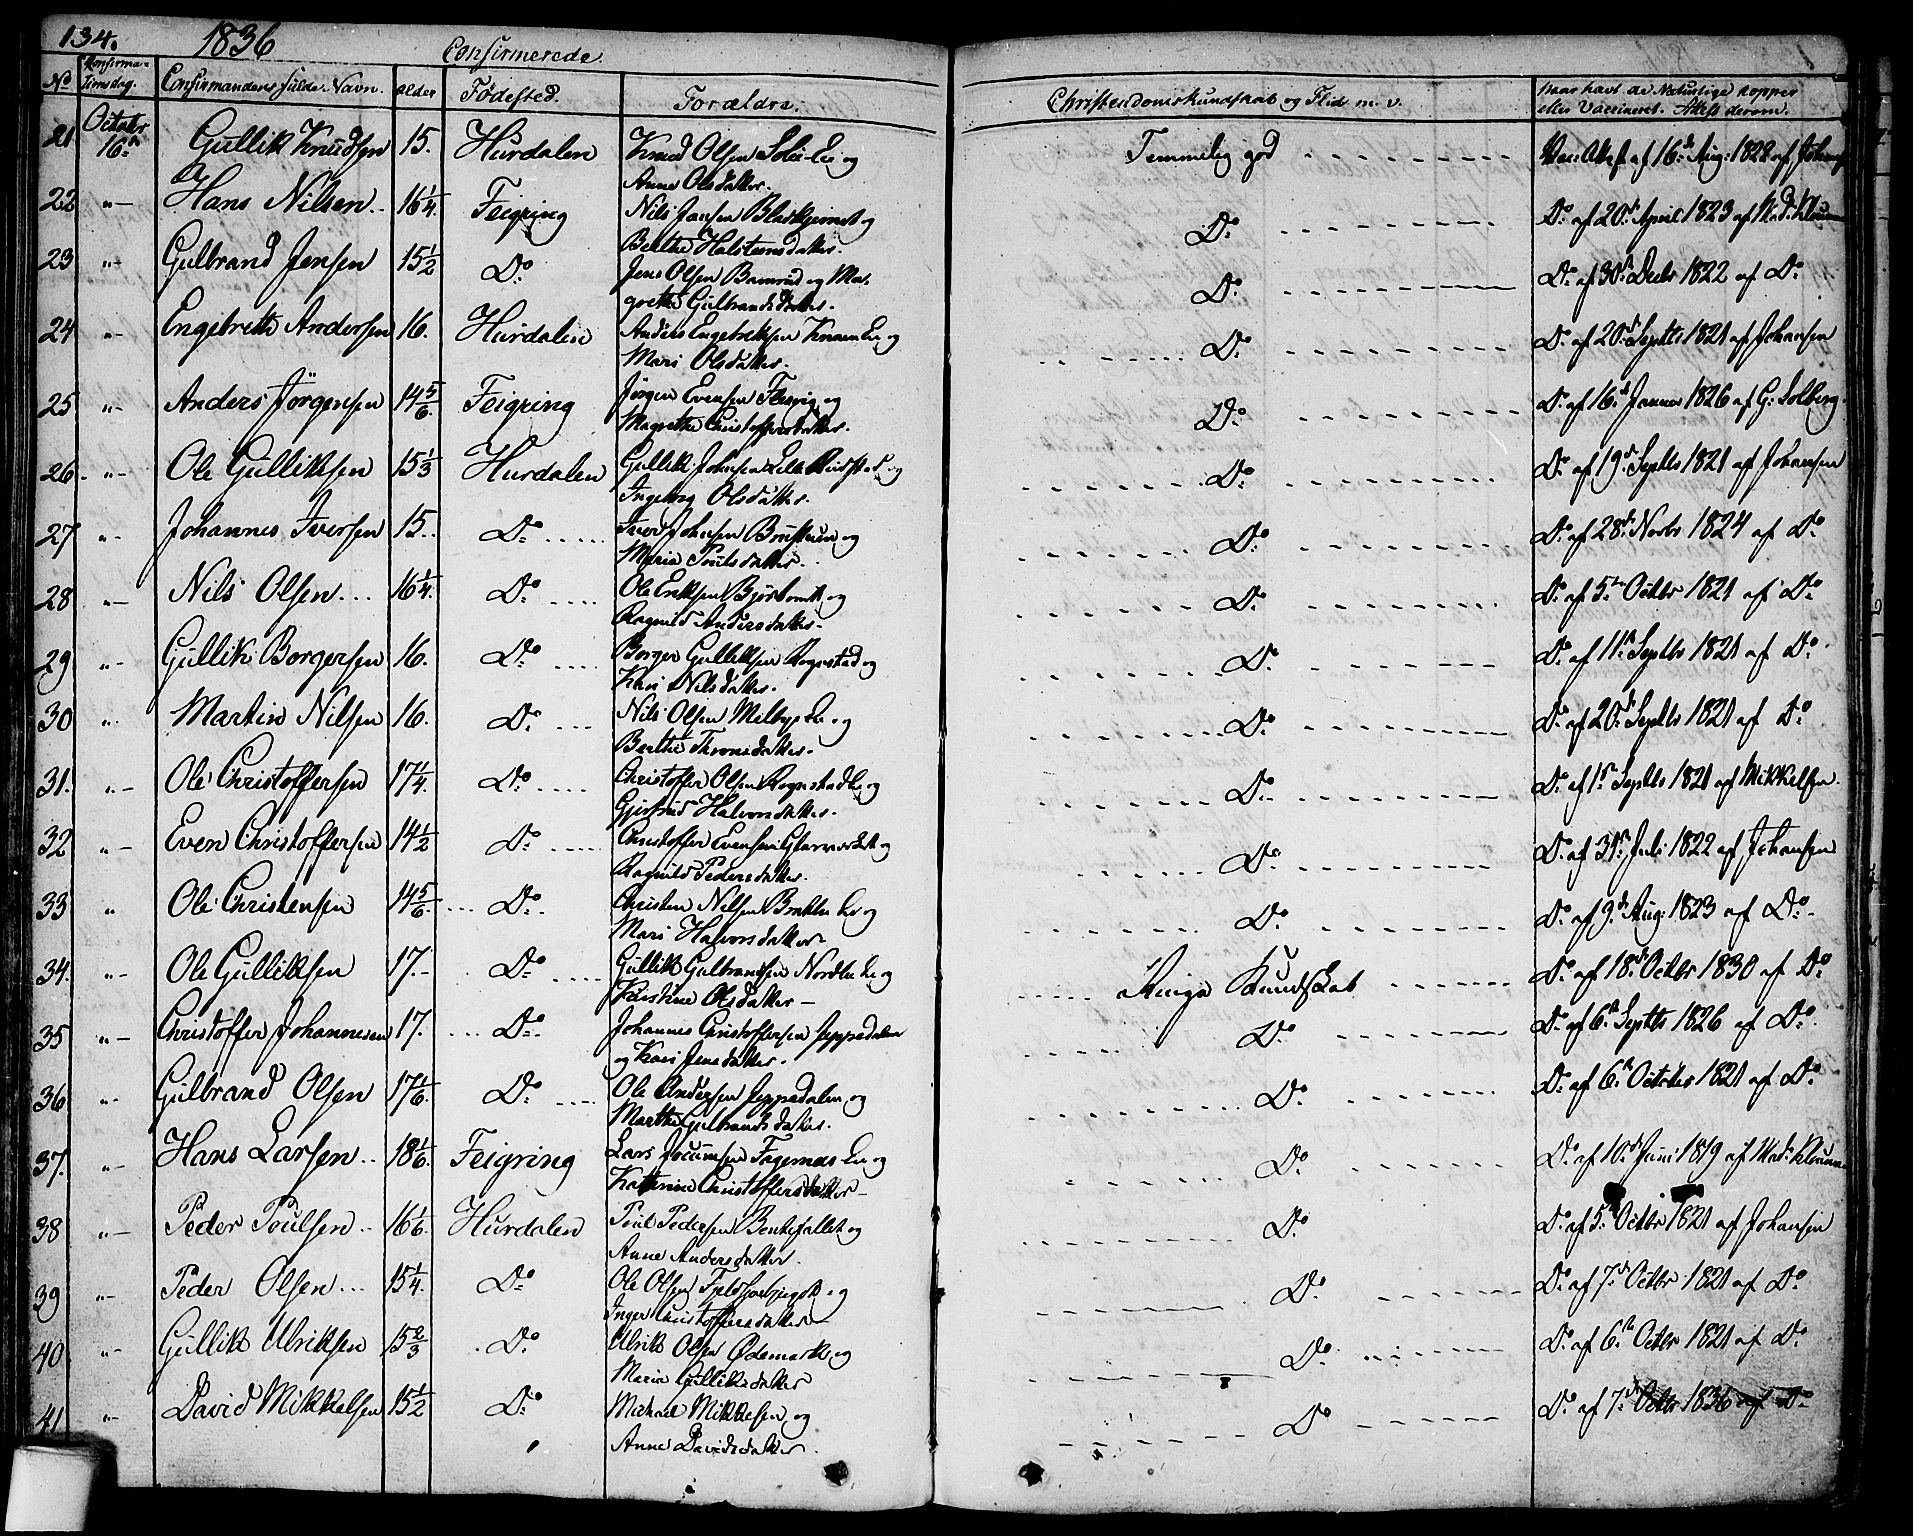 134. 1836 Confirmerede.
No Konfirmationsdag. Confirmandens fulde Navn. Alder Fødested. Forældre. Christendomskundskab og Flid m. v. naar havt de Naturlige Kopper eller Vaccineret. Attest derom.
21 October 16de Gullik Knudsen 15. Hurdalen Knud Olsen Eie og Anne Olsdatter. Temmelig god Vac: Attest af 16de Aug: 1822 af
22 "– Hans Nilsen 16 1/4. Feigring Nils Jansen og Berthe Halstensdatter. Do Do af 20de April 1823 af Mad:
23 "– Gulbrand Jensen 15 1/2 Do Jens Olsen og Margrethe Gulbrandsdatter. Do Do af 30te Decbr 1822 af Do
24 "– Engebreth Andersen 16. Hurdalen Anders Engebrethsen Eie og Mari Olsdatter. Do Do af 20de Septbr 1821 af Johansen
25 "– Anders Jörgensen 14 5/6. Feigring Jörgen Evensen og Magrethe Christoffersdatter. Do Do af 16de Januar 1826 af G. Solberg.
26. "– Ole Gulliksen 15 1/3 Hurdalen Gullik Johnsen Lille og Ingeborg Olsdatter. Do Do af 19de Septbr 1821 af Johansen
27 "– Johannes Iversen 15. Do Iver Johnsen og Maria Poulsdatter. Do Do af 28de Novbr 1824 af Do
28 "– Nils Olsen 16 1/4. Do Ole Eriksen og Ragnild Andersdatter. Do Do af 5te Octbr 1821 af Do
29 "– Gullik Borgersen 16. Do Borger Gulliksen Rognstad og Kari Nilsdatter. Do Do af 11te Septbr 1821 af Do
30 " Martin Nilsen 16. Do Nils Olsen Melbye Eie og Berthe Thronsdatter. Do Do af 20de Septbr 1821 af Do
31. "– Ole Christoffersen 17 1/4. Do Christoffer Olsen Rognstad Eie og Gjertrud Halvorsdatter. Do Do af 1te Septbr 1821 af Mikkelsen.
32 "– Even Christoffersen 14 1/2 Do Christoffer Evensen Glasværket og Ragnild Pedersdatter. Do Do af 31te Juli 1822 af Johansen
33 " Ole Christensen 14 5/6. Do Christen Nilsen Eie og Mari Halvorsdatter Do Do af 9de Aug: 1823 af Do
34. "– Ole Gulliksen 17. Do Gullik Gulbrandsen Eie og Kirstine Olsdatter – Ringe Kundskab Do af 18de Octbr 1830 af Do
35 "– Christoffer Johannesen 17. Do Johannes Christoffersen Jeppedalen og Kari Jensdatter. Do Do af 6te Septbr 1826 af Do
36 "– Gulbrand Olsen 17 1/6. Do Ole Andersen Jeppedalen og Marthe Gulbrandsdatter. Do Do af 6te October 1821 af Do
37. "– Hans Larsen 18 1/6. Feigring Lars Fagernæs Eie og Kathrine Christoffersdatter – Do Do af 10de Juni 1819 af Mad:
38 "– Peder Poulsen 16 1/6 Hurdalen Poul Pedersen og Anne Andersdatter. Do Do af 5te Octbr 1821 af Johansen
39 "– Peder Olsen 15 1/4. Do Ole Olsen og Inger Christoffersdatter Do Do af 7de Octbr 1821 af Do
40 "– Gullik Ulriksen 15 2/3 Do Ulrik Olsen Ødemark og Maria Gulliksdatter Do Do af 6te Octbr 1821 af Do
41 "– David Mikkelsen 15 1/2 Do Michael Mikkelsen og Anne Davidsdatter. Do Do af 7de Octbr 1836 af Do